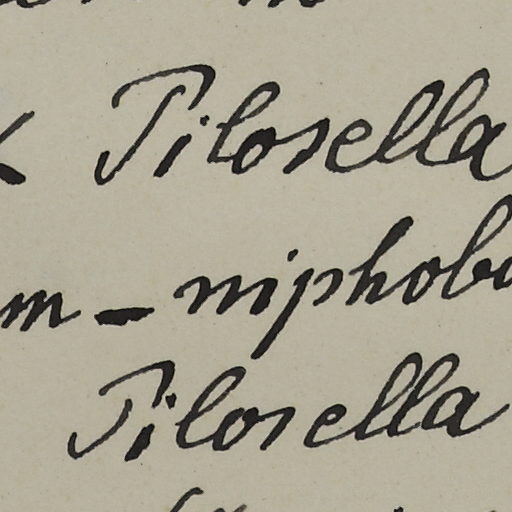 Pilosella
m - niphobo
Pilosella